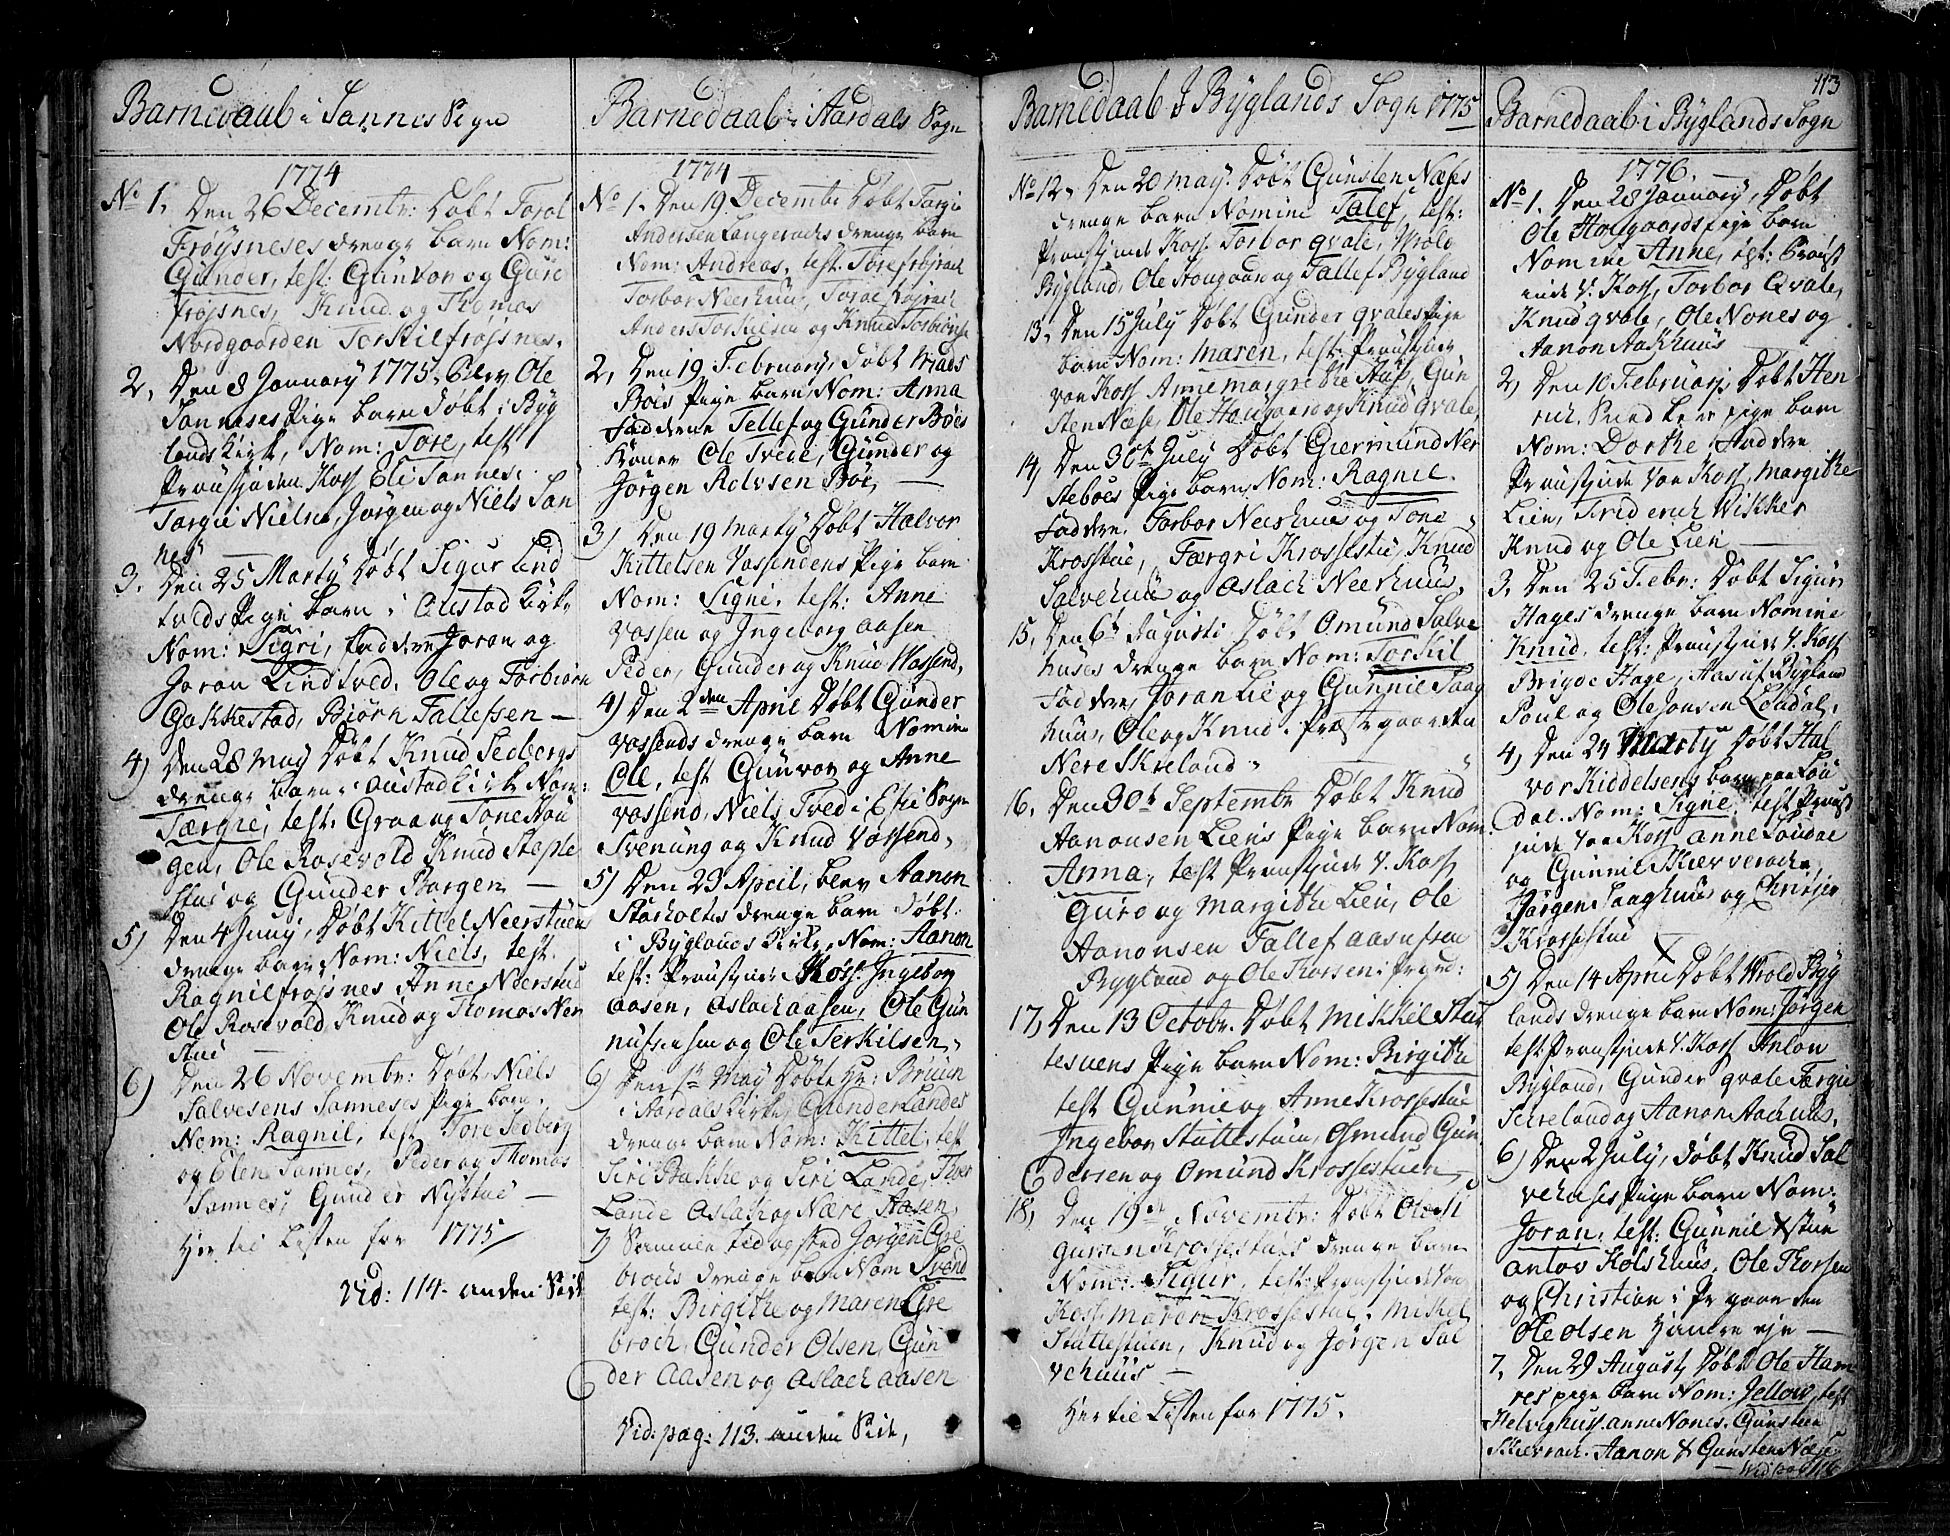 Barnedaab i Sannes Sogn
1774
No 1. Den 26 Decembr: Döbt Torol
Fröÿsneses drenge barn Nom:
Gunder, test: Gunvor og Guro
fröjsnes, Knud og Thomas
Nordgaarden Torkil frojsnes.
2, Den 8 January 1775. blev Ole
Sanneses Pige barn döbt i Byg
lands Kirk, Nom: Tore, test
Eli Sannes,
Targie Niels, Jörgen og Niels San
nes
3. Den 25 Marty Döbt Sigur Lind
tveds Pige barn i Oustad Kirke
Nom: Sigri, faddere Joran og
Joran Lindtved. Ole og Torbiörn
Gakkestad, Biörn Tallefsen —
4) Den 28 May Döbt Knud Sedbergs
drenge barn i Oustad Kirke Nom:
Tærgie, test: Groa og Tone Hou
gen, Ole Rosevold Knud Steple
stue og Gunder Borgen —
5) Den 4 Juny, Döbt Kittel Neerstuens
drenge barn, Nom: Niels, test.
Ragnil frojsnes Anne Neerstue
Ole Rosevold, Knud og Thomas Ner
stue —
6) Den 26 Novembr: Döbt Niels
Salvesens Sanneses Pige barn.
Nom: Ragnil, test Tore Sedberg
og Elen Sannes, Peder og Thomas
Sannes, Gunder Nystue —
Her til Listen for 1775/
Vid: 114. anden Side
Barnedaab i Aardals Sogn
1774
No 1. Den 19 Decembr Döbt Targie
Andersen Langeraks drenge barn
Nom: Andreas, test. Tore frojrach
Torbor Neerhuus, Toroe frojrach
Anders Torkilsen og Knud Torbiörns
2, Den 19 February, döbt
Böes Pige barn, Nom: Anna
Faddere Tellef og Gunder Böes
Koner Ole Tvede, Gunder og
Jörgen Rolvsen Böe, —
3) Den 19 Marty Döbt Halvor
Kittelsen Vassendens Pige barn
Nom: Signe, test: Anne
Vassen og Ingeborg Aasen
Peder, Gunder og Knud Vassend,
4) Den 2den April Döbt Gunder
Vassends drenge barn Nomine
Ole, test Gunvor og Anne
Vassend, Niels Tved i Sogn
Svenung og Knud Vassend,
5) Den 23 April, blev Aanon
Storholtes drenge barn Döbt
i Byglands Kirke, Nom: Aanon
test: Ingeborg
Aasen, Aslach Aasen, Ole Gun
og Ole Terkilsen,
6) Den 1te May Döbte Hr: Bruun
i Aardals Kirke Gunder Landes
drenge barn Nom: Kittel, test
Siri Bakke og Siri Lande,
Lande Aslak og Nære Aasen,
7) Sammen tid og sted Jörgen Egre
brochs drenge barn Nom Svend
test: Birgithe og Maren Egre
broch, Gunder Olsen, Gun
der Aasen og Aslach Aasen
Vid: pag: 113. anden Side,
Barnedaab i Byglands Sogn 1775
No 12, Den 20 May. Döbt Gunsten Næses
drenge barn Nomine Talef, test:
Torbor qvale, Wrold
Bygland, Ole Hougaan og Tallef Bygland
13. Den 15 July Döbt Gunder qvales Pige
barn Nom: Maren, test:
von Koss Anne Margrethe Hass, Gun
sten Næse, Ole Hougaard og Knud qvale,
14, Den 30te July Döbt Giermund Ner
steboes Pige barn, Nom: Ragnil.
Faddere. Torbor Neerhuus og Tone
Krosstue, Færgri Krossestue, Knud
Salvehuus og Aslach Neerhuus.
15. Den 6te Augusti Döbt Omund Salve
huses drenge barn Nom: Torkil
Faddere, Joran Lie og Gunnil Saag
huus, Ole og Knud i Præstegaarden
Nere Skreland —
16. Den 30te Septembr Döbt Knud
Aanonsen Liens Pige barn Nom:
Anna, test v. Koss
Guro og Margithe Lien, Ole
Aanonsen Tallef Aasufsen
Bygland og Ole Thorsen i
17, Den 13 Octobr. Döbt Mikkel Stut
tesuens Pige barn Nom: Birgithe
test Gunnil og Anne Krossestue
Ingebor Stuttestuen, Osmund Gun
dersen og Omund Krossestuen
18, Den 19de Novembr: Döbt
Gunsten Krossestues drenge barn
Nom: Sigur, test:
Koss Maren Krossestue, Mikkel
Stuttestuen, Knud og Jörgen Sal
vehuus —
Her til Listen for 1775.
113
Barnedaab i Byglands Sogn
1776. —
No 1. Den 28 January, Döbt
Ole Hougaards Pige barn
Nomine Anne, test:
v. Koss, Torbor Qvale,
Knud qvale, Ole Nones og
Aanon Aakhuus
2, Den 10 February Döbt Hen
rich pige barn
Nom: Dorthe, Faddere
von Koss, Margithe
Lien, Friderich Wikker
Knud og Ole Lien —
3, Den 25 Febr: Döbt Sigur
Hages drenge barn Nomine
Knud, test: v. Koss
Brigde Hage, Aasuf Bygland
Poul og Ole Jonsen Loudal,
4, Den 24 Marty Döbt Hal
vor Kiddelsens barn paa Lou
dal. Nom: Signe, test
von Koss Anne Loudal
og Gunnil Skievrach,
Jörgen Saaghuus og Christen
Krossestue
5) Den 14 April Döbt Wrold Byg
lands drenge barn Nom: Jörgen
test v. Koss Anlou
Bygland, Gunder qvale Færgie
og Aanon Aachuus.
6) Den 2 July, döbt Knud Sal
vehuses Pige barn Nom:
Joran, test: Gunnil
Anlov Kolshuus, Ole Thorsen
og Christian i Pr gaarden
Ole Olsen —
7, Den 29 August, Döbt Ole Ham
res pige barn Nom: Jellow, test
Anne Nones, Gunsten
Skievrach. Aanon & Gunsten Næse